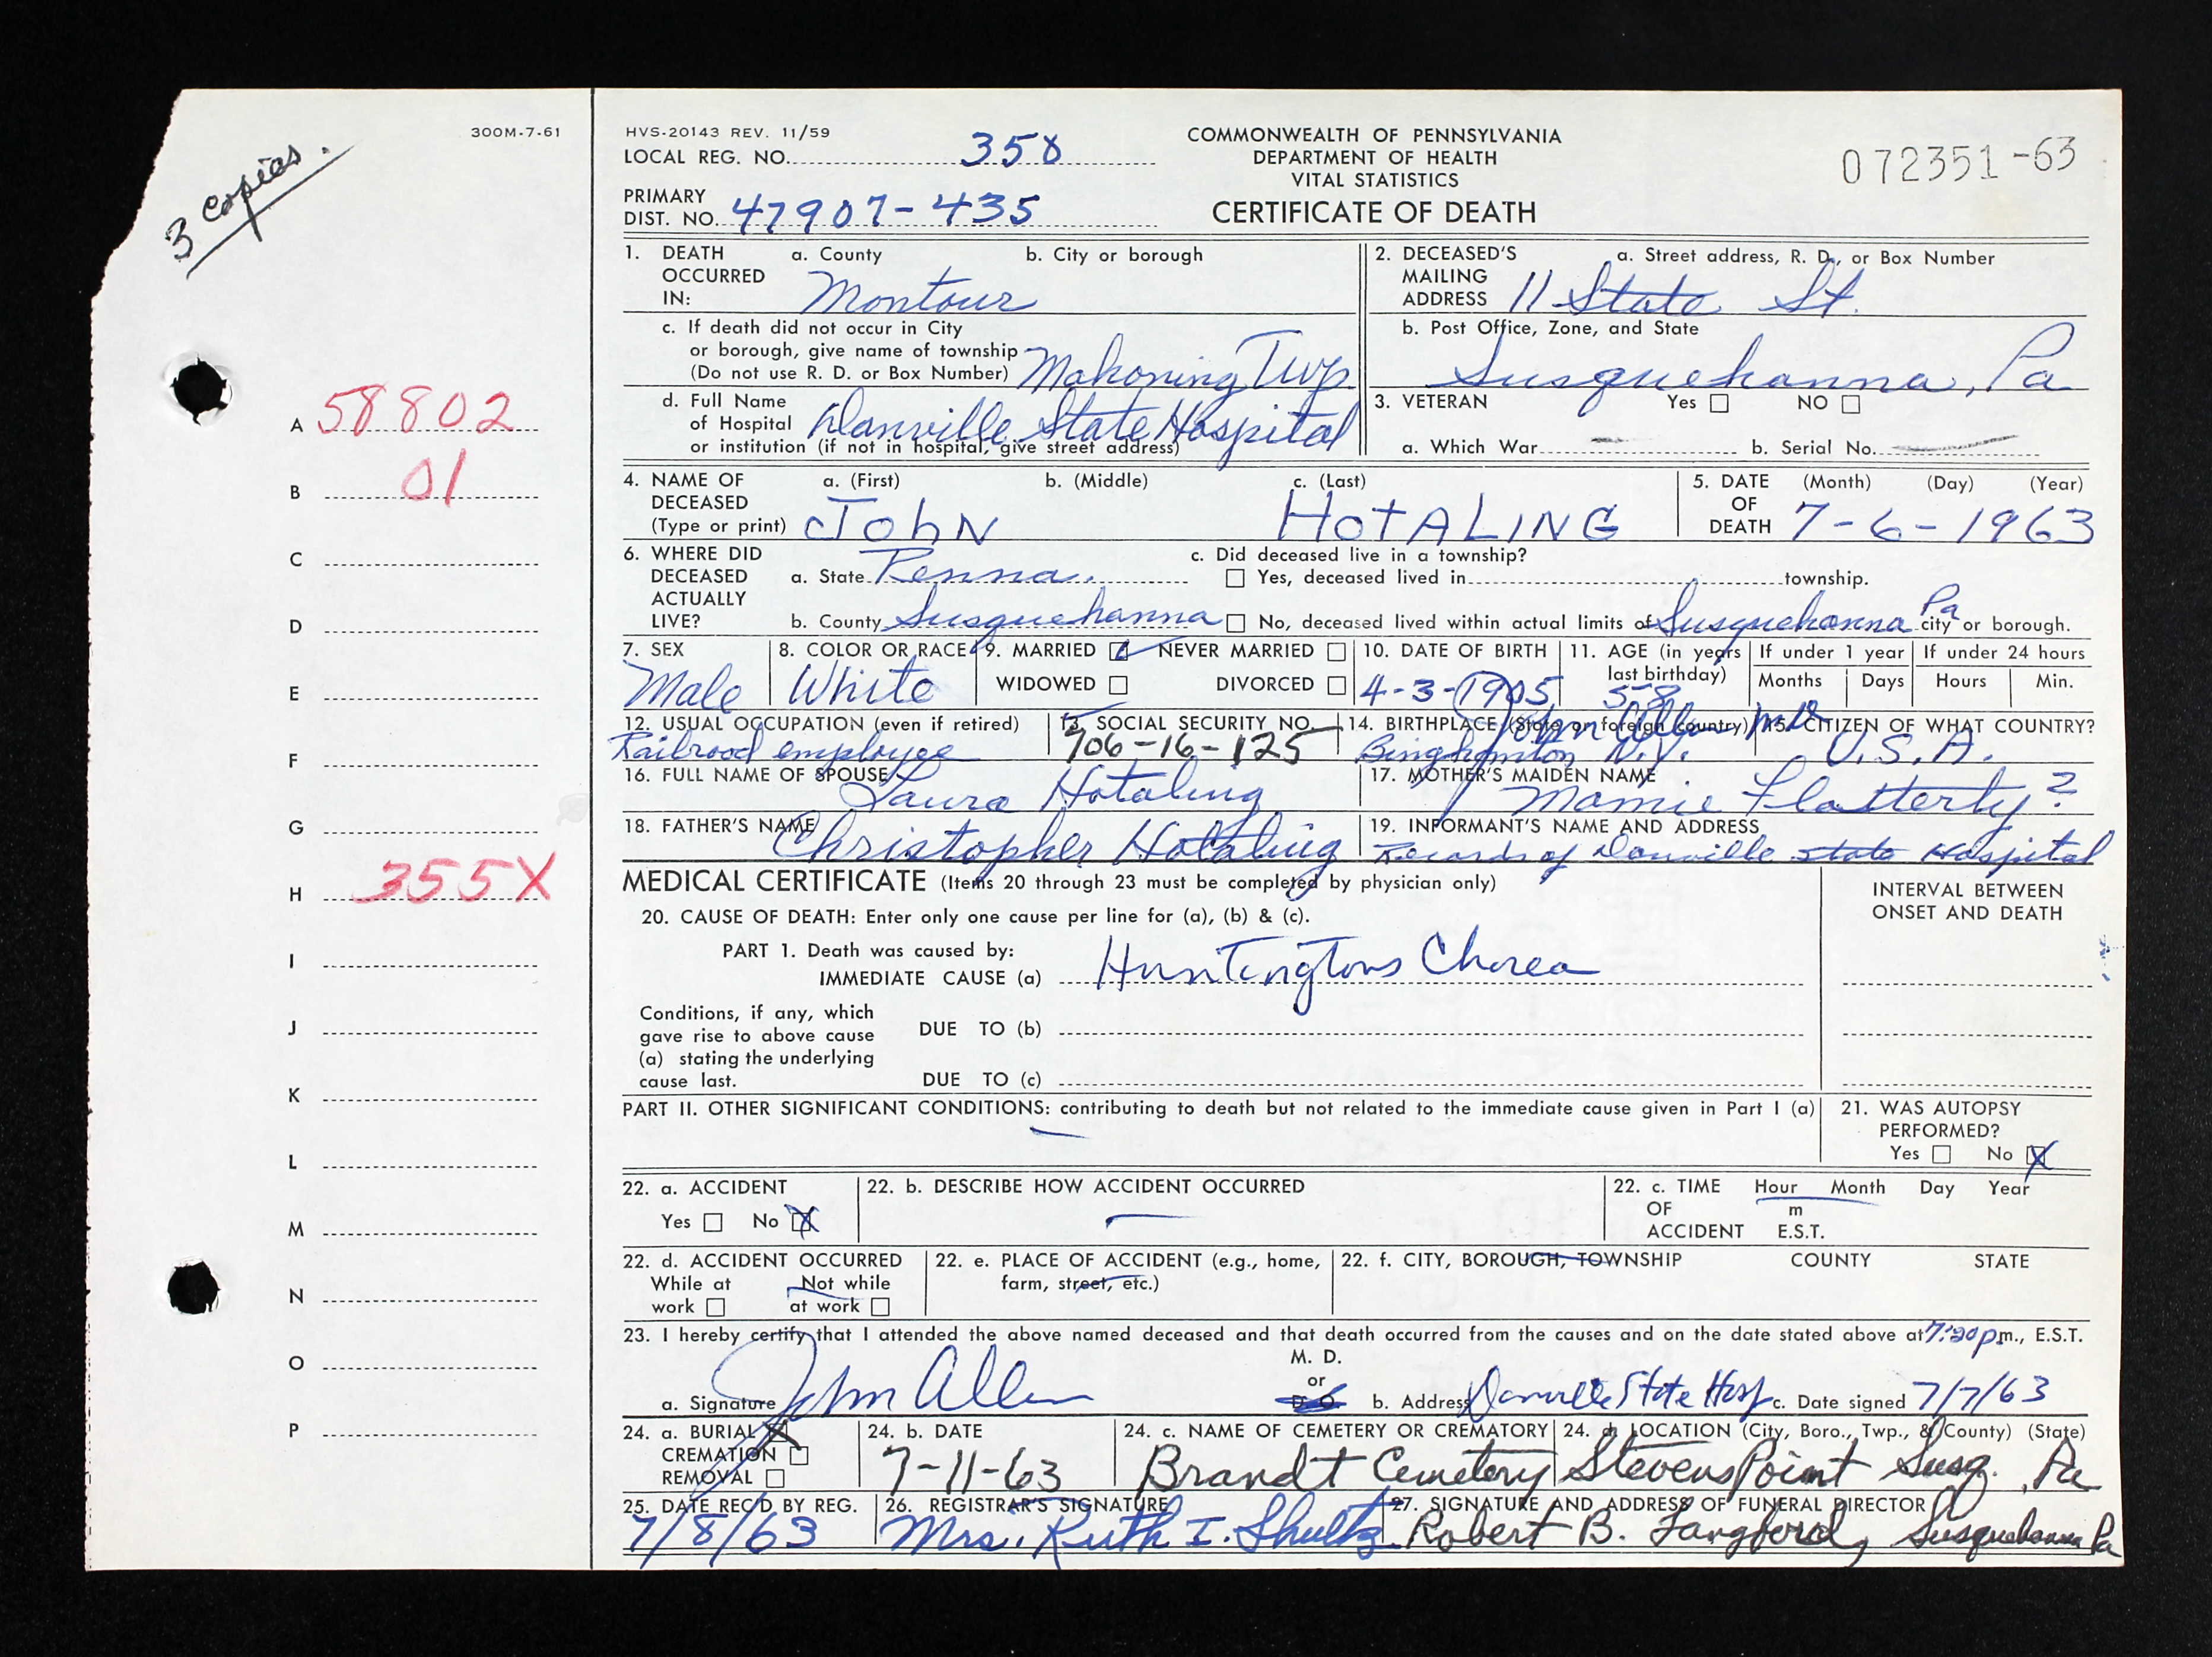 3 copies.
300M-7-61
A 58802
B 01
C
D
E
F
G
H 355X
I
J
K
L
M
N
O
P
HVS-20143 REV. 11/59
LOCAL REG. NO. 358
PRIMARY
DIST. NO. 47907-435
COMMONWEALTH OF PENNSYLVANIA
DEPARTMENT OF HEALTH
VITAL STATISTICS
CERTIFICATE OF DEATH
072351-63
1. DEATH OCCURRED IN: a. County b. City or borough
Montour
c. If death did not occur in City
or borough, give name of township
(Do not use R. D. or Box Number) Mahoning Twp
d. Full Name
of Hospital Danville State Hospital
or institution (if not in hospital, give street address)
2. DECEASED'S MAILING ADDRESS a. Street address, R. D., or Box Number
11 State St.
b. Post Office, Zone, and State
Susquehanna, Pa
3. VETERAN Yes NO
a. Which War b. Serial No.
4. NAME OF DECEASED (Type or print) a. (First) b. (Middle) c. (Last)
John HOTALING
5. DATE OF DEATH (Month) (Day) (Year)
7-6-1963
6. WHERE DID DECEASED ACTUALLY LIVE?
a. State Penna.
b. County Susquehanna
c. Did deceased live in a township?
Yes, deceased lived in township.
No, deceased lived within actual limits of Susquehanna Pa city or borough.
7. SEX
Male
8. COLOR OR RACE
White
9. MARRIED NEVER MARRIED
WIDOWED DIVORCED
10. DATE OF BIRTH
4-3-1905
John Allen MD
11. AGE (in years last birthday)
58
If under 1 year
Months Days
If under 24 hours
Hours Min.
12. USUAL OCCUPATION (even if retired)
Railroad employee
13. SOCIAL SECURITY NO.
706-16-125
14. BIRTHPLACE (State or foreign country)
Binghamton N.Y.
15. CITIZEN OF WHAT COUNTRY?
U.S.A.
16. FULL NAME OF SPOUSE
Laura Hotaling
17. MOTHER'S MAIDEN NAME
Mamie Flatterty?
18. FATHER'S NAME
Christopher Hotaling
19. INFORMANT'S NAME AND ADDRESS
Records of Danville State Hospital
MEDICAL CERTIFICATE (Items 20 through 23 must be completed by physician only)
INTERVAL BETWEEN
ONSET AND DEATH
20. CAUSE OF DEATH: Enter only one cause per line for (a), (b) & (c).
PART 1. Death was caused by:
IMMEDIATE CAUSE (a) Huntingtons Chorea
Conditions, if any, which
gave rise to above cause
(a) stating the underlying
cause last.
DUE TO (b)
DUE TO (c)
PART II. OTHER SIGNIFICANT CONDITIONS: contributing to death but not related to the immediate cause given in Part I (a)
21. WAS AUTOPSY
PERFORMED?
Yes No X
22. a. ACCIDENT
Yes No X
22. b. DESCRIBE HOW ACCIDENT OCCURRED
22. c. TIME OF ACCIDENT Hour Month Day Year
m
E.S.T.
22. d. ACCIDENT OCCURRED
While at work Not while at work
22. e. PLACE OF ACCIDENT (e.g., home,
farm, street, etc.)
22. f. CITY, BOROUGH, TOWNSHIP COUNTY STATE
23. I hereby certify that I attended the above named deceased and that death occurred from the causes and on the date stated above at 7:20 p.m., E.S.T.
a. Signature John Allen
M. D.
or
D. O.
b. Address Danville State Hosp c. Date signed 7/7/63
24. a. BURIAL X
CREMATION
REMOVAL
24. b. DATE
7-11-63
24. c. NAME OF CEMETERY OR CREMATORY
Brandt Cemetery
24. d. LOCATION (City, Boro., Twp., & County) (State)
Stevens Point Susq. Pa
25. DATE REC'D BY REG.
7/8/63
26. REGISTRAR'S SIGNATURE
Mrs. Ruth I. Shultz
27. SIGNATURE AND ADDRESS OF FUNERAL DIRECTOR
Robert B. Langford, Susquehanna Pa